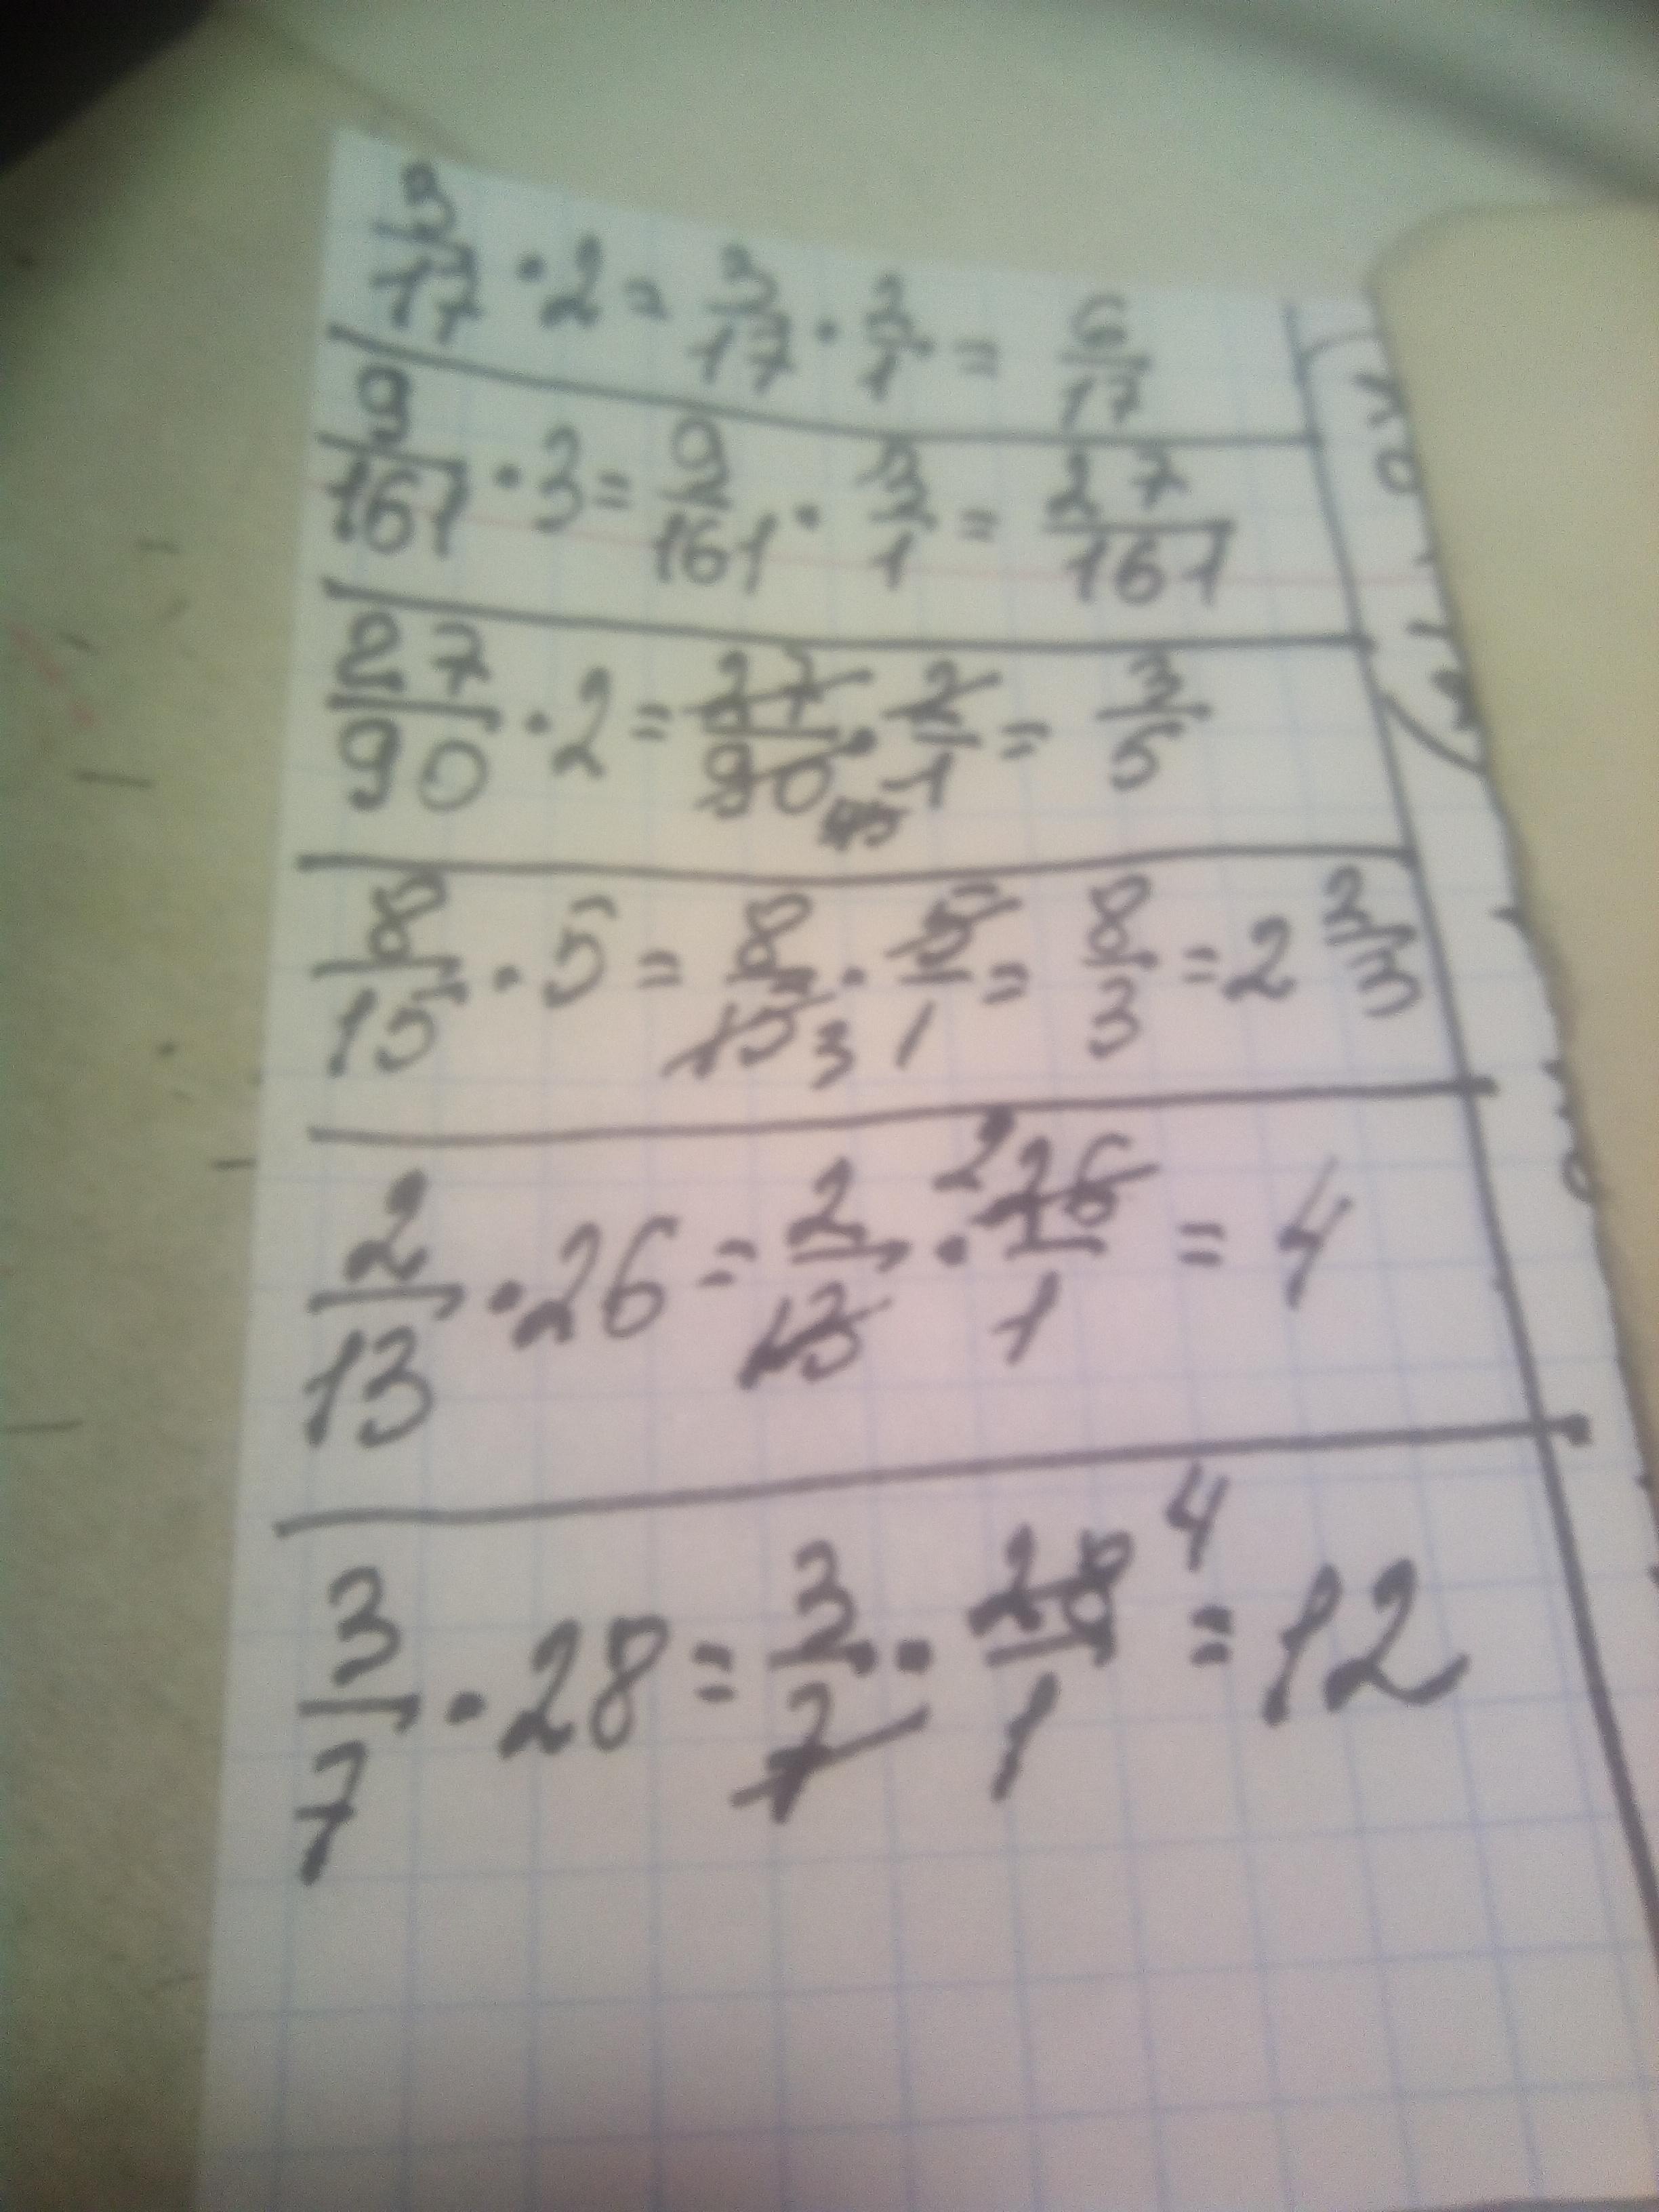 3/17 · 2 = 3/17 · 2/1 = 6/17
9/161 · 3 = 9/161 · 3/1 = 27/161
27/90 · 2 = 27/90 45 · 2/1 = 3/5
8/15 · 5 = 8/15 3 · 5/1 = 8/3 = 2 2/3
2/13 · 26 = 2/13 · 2 26/1 = 4
3/7 · 28 = 3/7 · 28 4/1 = 12